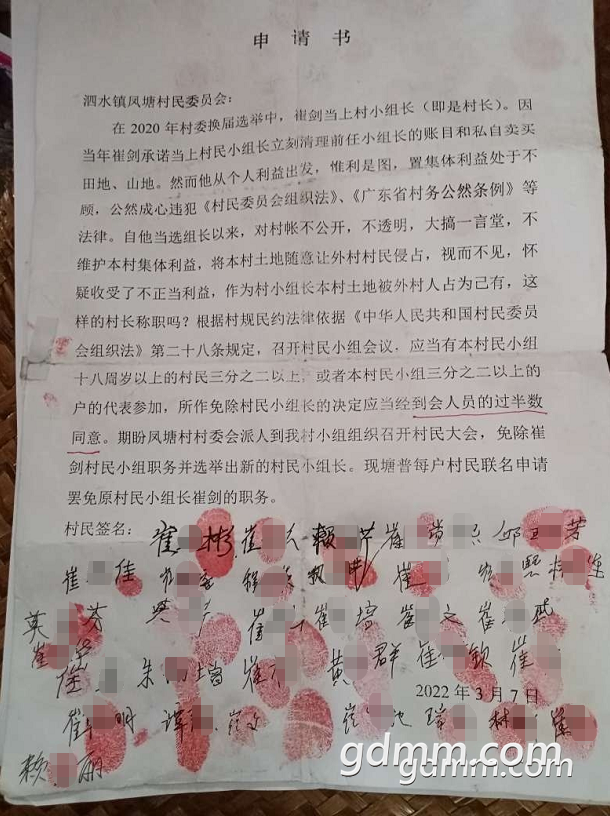 申 请 书
泗水镇凤塘村民委员会：
在 2020 年村委换届选举中，崔剑当上村小组长（即是村长）。因
当年崔剑承诺当上村民小组长立刻清理前任小组长的账目和私自卖买
田地、山地。然而他从个人利益出发，惟利是图，置集体利益处于不
顾，公然成心违犯《村民委员会组织法》、《广东省村务公然条例》等
法律。自他当选组长以来，对村帐不公开，不透明，大搞一言堂，不
维护本村集体利益，将本村土地随意让外村村民侵占，视而不见，怀
疑收受了不正当利益，作为村小组长本村土地被外村人占为己有，这
样的村长称职吗？根据村规民约法律依据《中华人民共和国村民委员
会组织法》第二十八条规定，召开村民小组会议，应当有本村民小组
十八周岁以上的村民三分之二以上，或者本村民小组三分之二以上的
户的代表参加，所作免除村民小组长的决定应当经到会人员的过半数
同意。期盼凤塘村村委会派人到我村小组组织召开村民大会，免除崔
剑村民小组职务并选举出新的村民小组长。现塘普每户村民联名申请
罢免原村民小组长崔剑的职务。
村民签名：崔 彬 崔 赖 崔 邱 芳
崔 佳 崔
英 芬 崔 崔
朱 增 崔 黄 群 崔 钦 崔
2022 年 3 月 7 日
崔 明 谭 崔
赖 丽
gdmm.com
gdmm.com